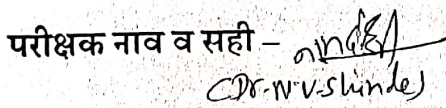 परीक्षक नाव व सही –
(Dr. N. V. Shinde)